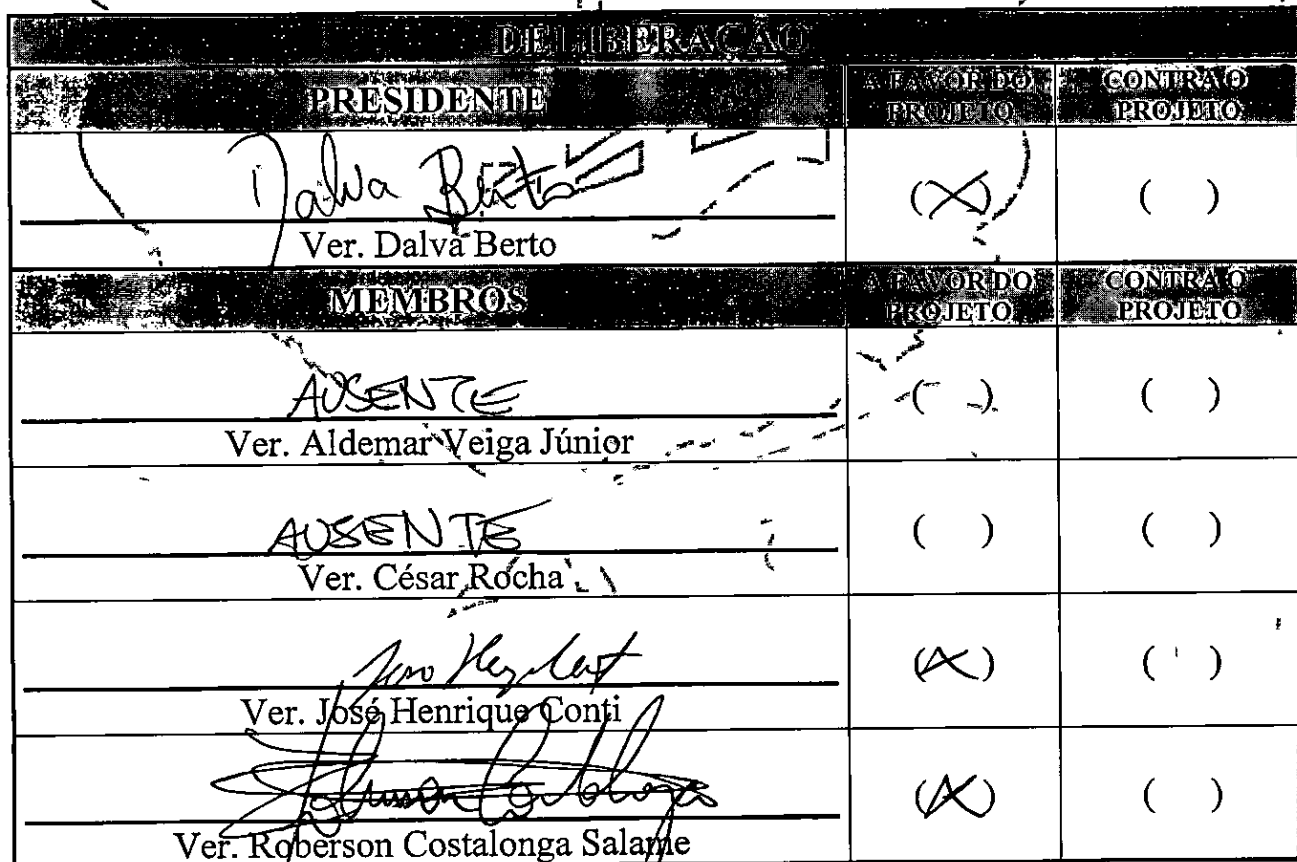 DELIBERAÇÃO
PRESIDENTE
A FAVOR DO PROJETO
CONTRA O PROJETO
Dalva Berto
(X)
( )
Ver. Dalva Berto
MEMBROS
A FAVOR DO PROJETO
CONTRA O PROJETO
AUSENTE
( )
( )
Ver. Aldemar Veiga Júnior
AUSENTE
( )
( )
Ver. César Rocha
(X)
( )
Ver. José Henrique Conti
(X)
( )
Ver. Roberson Costalonga Salame